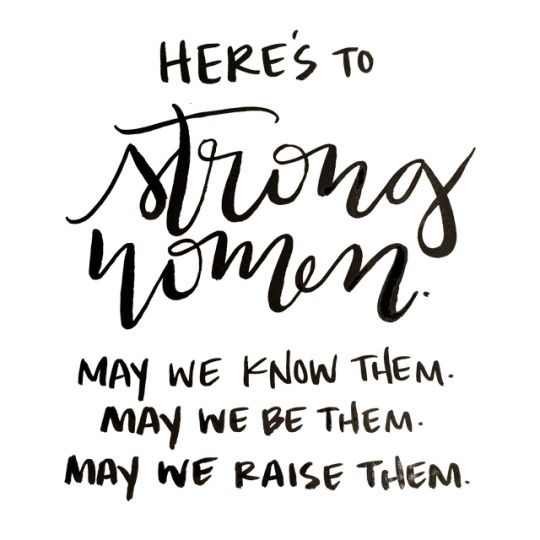 HERE'S TO
strong
women.
MAY WE KNOW THEM.
MAY WE BE THEM.
MAY WE RAISE THEM.